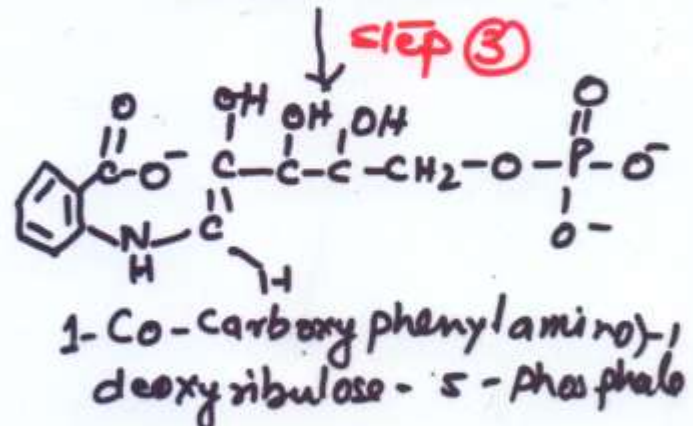 step ③
O OH OH OH O
C-O⁻ C-C-C-CH₂-O-P-O⁻
N C O⁻
H H
1-Co-Carboxy phenylamino)-1
deoxyribulose-5-phosphate